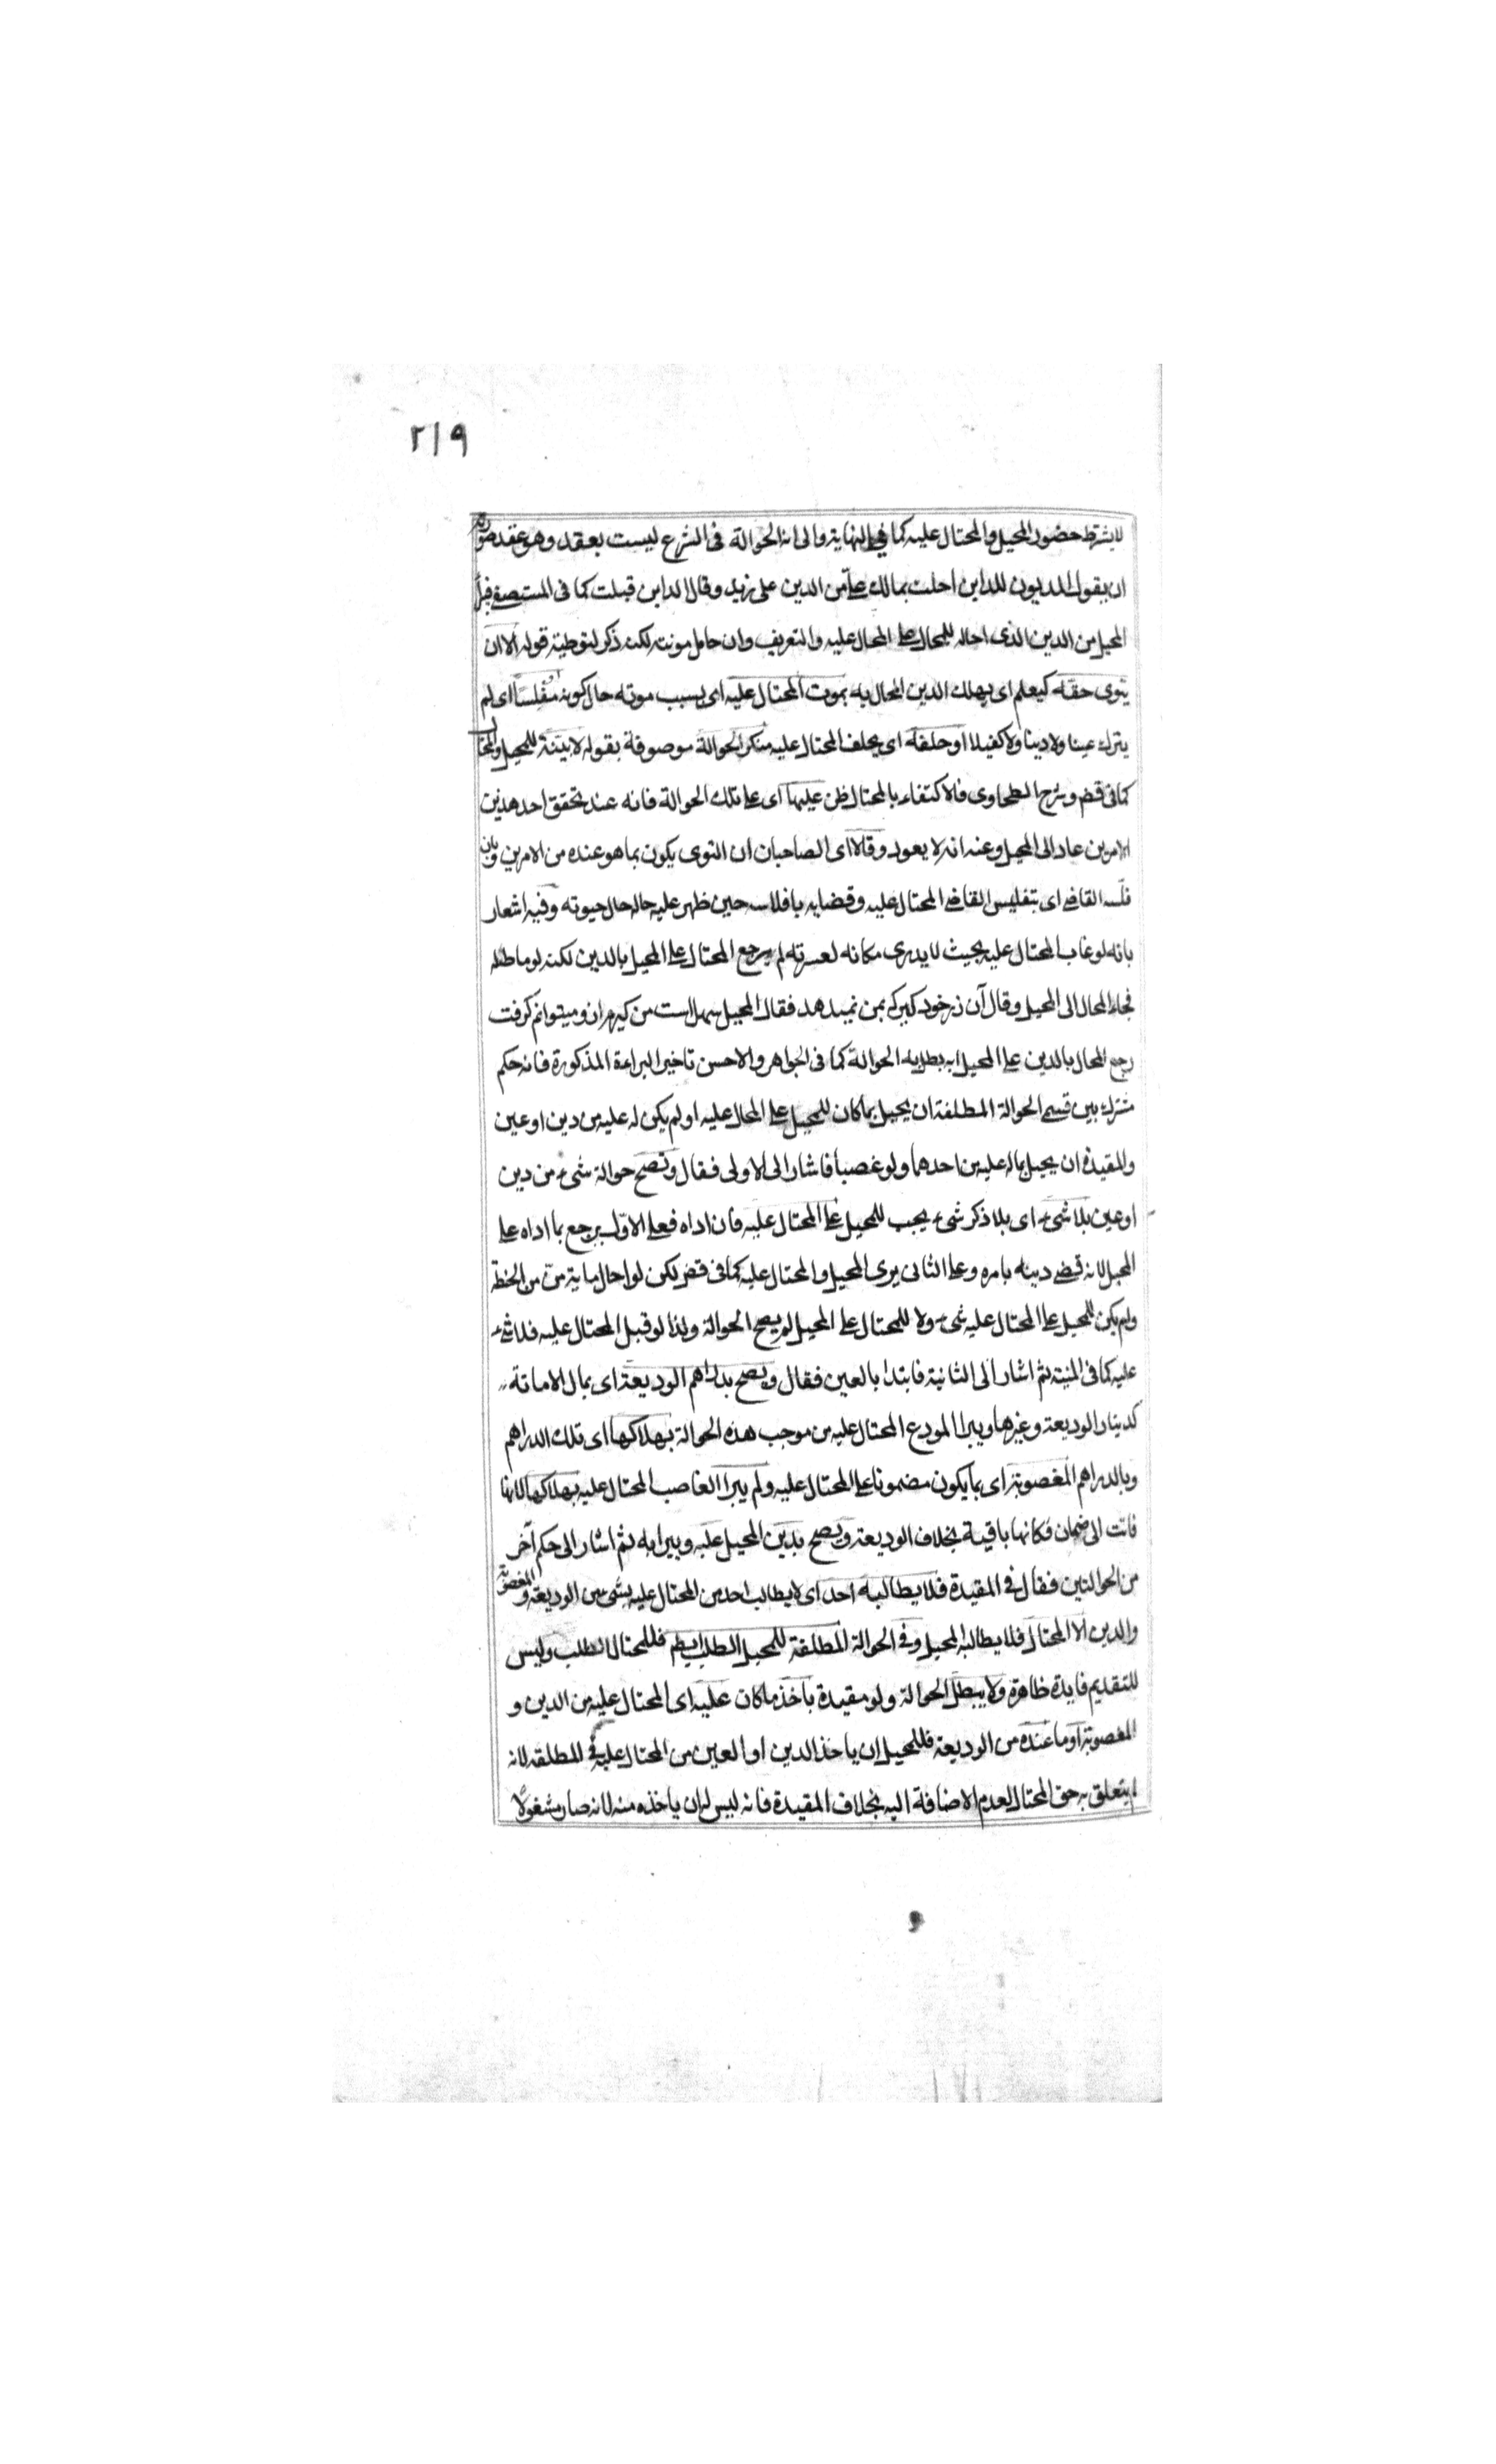 ٢١٩
لا يشترط حضور المحيل والمحتال عليه كما في النهاية والى ان الحوالة فى الشرع ليست بعقد وهو عقد صورته
ان يقول المديون للداين احلت بمالك على من الدين على زيد وقال الداين قبلت كما فى المستصفى
المحيل من الدين الذى احاله للمحال على المحال عليه والتعريف وان حامل مونته لكنه ذكر لتوطية قوله الا ان
يتوى حقه كيعلم اى يهلك الدين المحال به بموت المحتال عليه اى بسبب موته حال كونه مفلسا اى لم
يترك عينا ولا دينا ولا كفيلا او حلفه اى يحلف المحتال عليه منكر الحوالة موصوفة بقوله لا بينة للمحيل والمحتال
كما فى قض وشرح الطحاوى فالاكتفاء بالمحتال ظن عليها اى على تلك الحوالة فانه عند تحقق احد هذين
الامرين عاد الى المحيل وعنه انه لا يعود وقالا اى الصاحبان ان التوى يكون بما هو عنده من الامرين وبان
فلسه القاضى اى بتفليس القاضى المحتال عليه وقضايه بافلاسه حين ظهر عليه حاله حال حيوته وفيه اشعار
بانه لو غاب المحتال عليه بحيث لا يدرى مكانه لعسرته لم يرجع المحتال على المحيل بالدين لكنه لو ماطله
فجاء المحال الى المحيل وقال آن زر خود كير كه بمن نميدهد فقال المحيل سهل است من كيرم ازو ميتوانم كرفت
رجع المحال بالدين على المحيل به بطلاية الحوالة كما فى الجواهر والاحسن تاخير البراءة المذكورة فانه حكم
مشترك بين قسمى الحوالة المطلقة ان يحيل بما كان للمحيل على المحال عليه او لم يكن له عليه من دين او عين
والمقيدة ان يحيل بماله عليه من احدهما ولو غصبا فاشار الى الاولى فقال وتصح حوالة شىء من دين
او عين بلا شىء اى بلا ذكر شىء يجب للمحيل على المحتال عليه فان اداه فعلى الاول يرجع بما اداه على
المحيل لانه قضى دينه بامره وعلى الثانى برى المحيل والمحتال عليه كما فى قض لكن لو احال ماية من من الحنطة
ولم يكن للمحيل على المحتال عليه شىء ولا للمحتال على المحيل لم يصح الحوالة ولذا لو قبل المحتال عليه فلا شىء
عليه كما فى المنية ثم اشار الى الثانية فابتدا بالعين فقال ويصح بدراهم الوديعة اى بمال الامانة
كدينار الوديعة وغيرها ويبرا المودع المحتال عليه من موجب هذه الحوالة بهلاكها اى تلك الدراهم
وبالدراهم المغصوبة اى بما يكون مضمونا على المحتال عليه ولم يبرا الغاصب المحتال عليه بهلاكها لانها
فاتت الى ضمان فكانها باقية بخلاف الوديعة ويصح بدين المحيل عليه ويبرا به ثم اشار الى حكم آخر
من الحوالتين فقال فى المقيدة فلا يطالبه احد اى لا يطالب احد من المحتال عليه بشىء من الوديعة والمغصوبة
والدين الا المحتال فلا يطالبه المحيل وفى الحوالة المطلقة للمحيل الطلب ايضا فللمحتال الطلب وليس
للتقديم فايدة ظاهرة ولا يبطل الحوالة ولو مقيدة باخذ ما كان عليه اى المحتال عليه من الدين و
المغصوبة او ما عنده من الوديعة فللمحيل ان ياخذ الدين او العين من المحتال عليه فى المطلقه لانه
لم يتعلق به حق المحتال لعدم الاضافة اليه بخلاف المقيدة فانه ليس له ان ياخذه منه لانه صار مشغولا